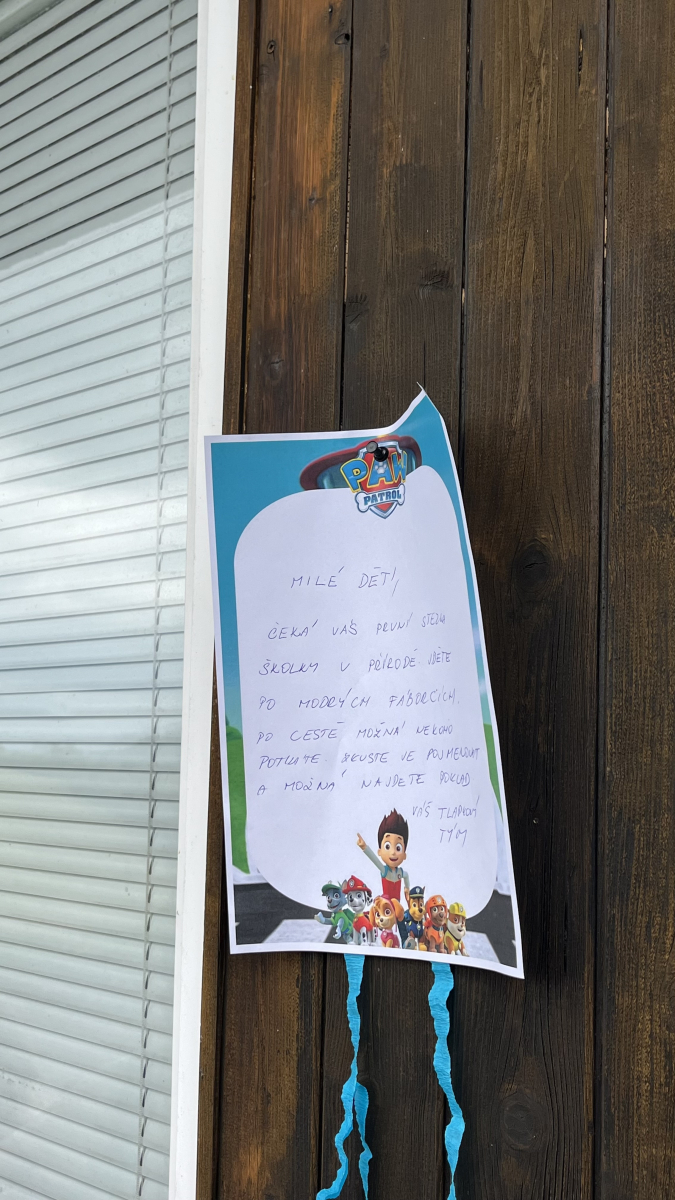 PAW
PATROL
MILÉ DĚTI,
ČEKÁ VÁS PRVNÍ STEZKA
ŠKOLKY V PŘÍRODĚ. JDĚTE
PO MODRÝCH FÁBORCÍCH.
PO CESTĚ MOŽNÁ NĚKOHO
POTKÁTE. ZKUSTE JE POJMENOVAT
A MOŽNÁ NAJDETE POKLAD
VÁŠ TLAPKOVÝ
TÝM